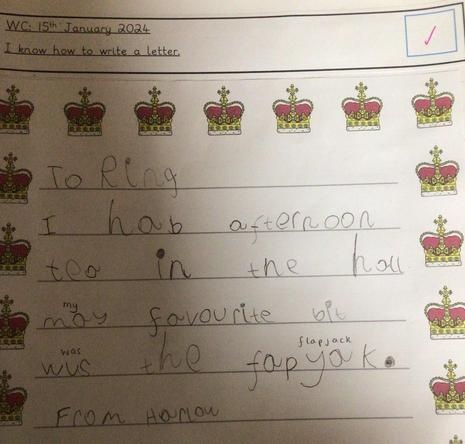 WC: 15th January 2024
I know how to write a letter.
To Ring
I hab afternoon
tea in the hall
my
may favourite bit
was flapjack
wus the fapyak.
From